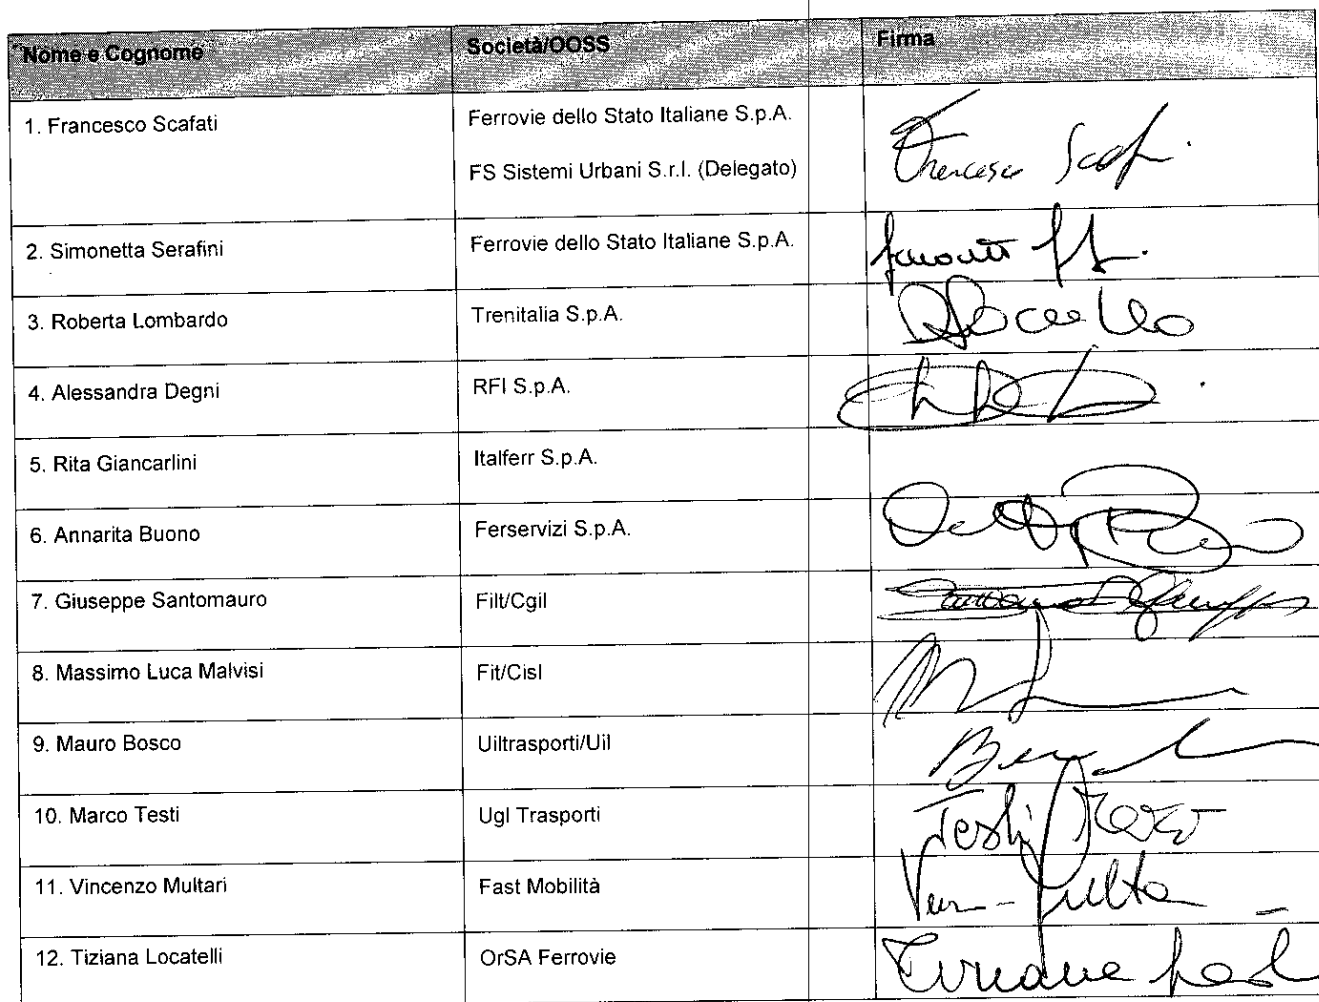 Nome e Cognome Società/OOSS Firma
1. Francesco Scafati Ferrovie dello Stato Italiane S.p.A.
FS Sistemi Urbani S.r.l. (Delegato)
Francesco Scaf
2. Simonetta Serafini Ferrovie dello Stato Italiane S.p.A.
3. Roberta Lombardo Trenitalia S.p.A.
4. Alessandra Degni RFI S.p.A.
5. Rita Giancarlini Italferr S.p.A.
6. Annarita Buono Ferservizi S.p.A.
7. Giuseppe Santomauro Filt/Cgil
8. Massimo Luca Malvisi Fit/Cisl
9. Mauro Bosco Uiltrasporti/Uil
10. Marco Testi Ugl Trasporti Testi
11. Vincenzo Multari Fast Mobilità
12. Tiziana Locatelli OrSA Ferrovie Tiziana